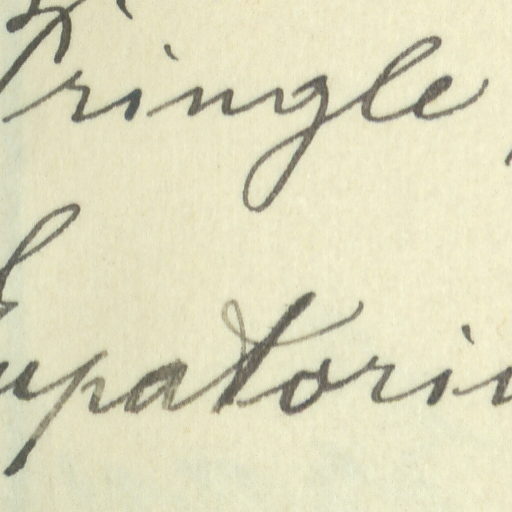 Pringle,
Eupatoriu